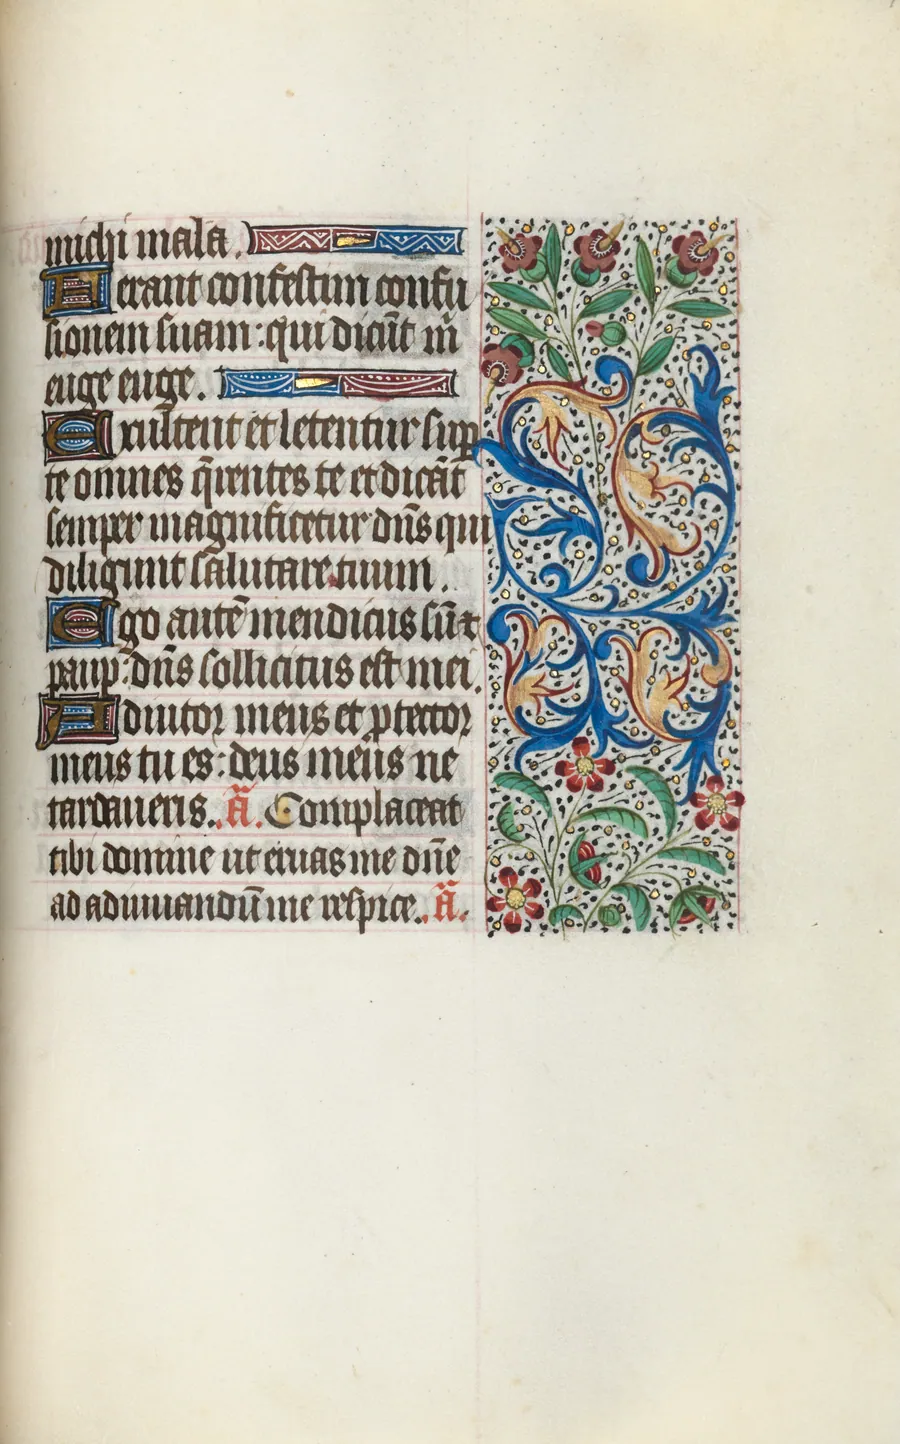 michi mala.
Ferant confestim confu
sionem suam: qui dicūt m̄
euge euge.
Exultent et letentur sup̄
te omnes q̄rentes te et dicāt
semper magnificetur dn̄s qui
diligunt salutare tuum.
Ego autē mendicus sū et
paup: dn̄s sollicitus est mei.
Adiutor meus et ꝑtector
meus tu es: deus meus ne
tardaueris. ā. Complaceat
tibi domine ut eruas me dn̄e
ad adiuuandū me respice. ā.